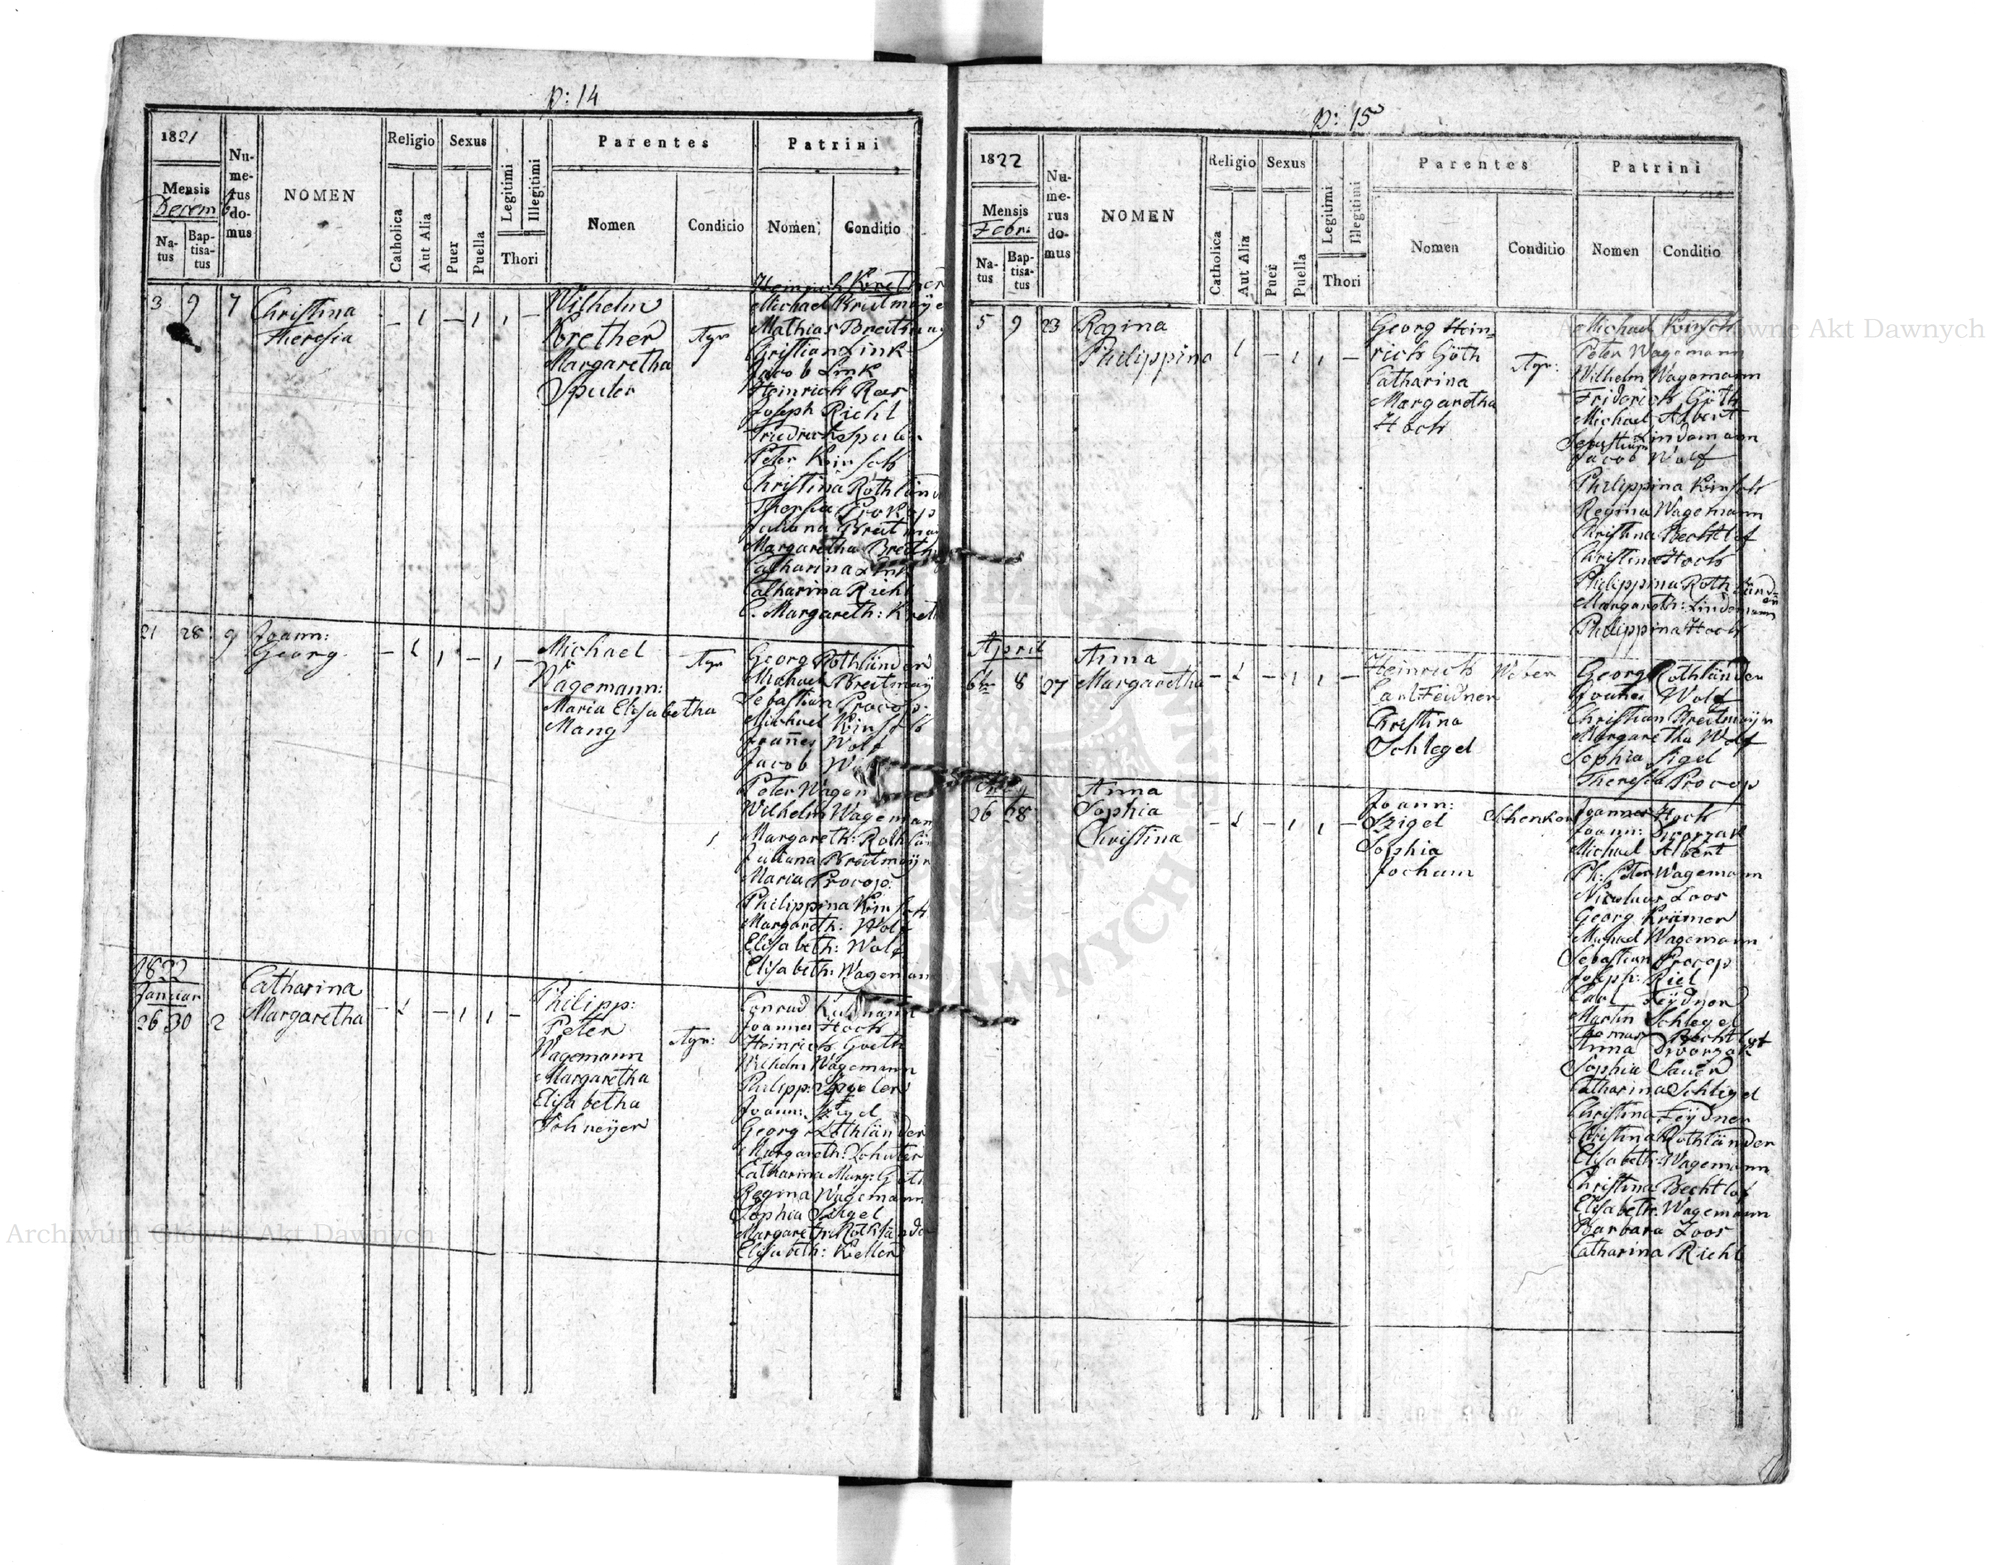 p: 14
1821
Mensis
Decemb
Natus
Baptisatus
Numerus domus
NOMEN
Religio
Catholica
Aut Alia
Sexus
Puer
Puella
Legitimi
Illegitimi
Thori
Parentes
Nomen
Conditio
Patrini
Nomen
Conditio
3 9 7 Christina
Theresia
– 1 – 1 1 –
Wilhelm
Krether
Margaretha
Spuler
Agr
Heinrich Krether
Michael Breitmaye
Mathias Breitmay
Christian Link
Jacob Link
Heinrich Roos
Joseph Riehl
Friedrich Spuler
Peter Kirsch
Christina Rothländ
Theresia Prokop
Juliana Breitmay
Margaretha Breitm
Catharina Link
Catharina Riehl
C. Margareth: Kreth
21 28 9 Joann:
Georg
– 1 1 – 1 –
Michael
Wagemann:
Maria Elisabetha
Mang
Agr
Georg Rothländer
Michael Breitmay
Sebastian Procop
Michael Kirsch
Joañes Wolf
Jacob Wo
Peter Wagen
Wilhelm Wagemann
Margareth: Rothlän
Juliana Breitmayr
Maria Procop:
Philippina Kirsch
Margareth: Wolf
Elisabeth: Wolf
Elisabeth: Wagemann
1822
Januar
26 30 2 Catharina
Margaretha
– 1 – 1 1 –
Philipp:
Peter
Wagemann
Margaretha
Elisabetha
Schneijer
Agr:
Conrad Kullmann
Joannes Hoch
Heinrich Goeth
Wilhelm Wagemann
Joann: Szigel
Georg Rothländer
Margareth: Schuler
Catharina Marg: Goth
Regina Wagemann
Sophia Szigel
Margareth: Rothländer
Elisabeth: Keller
p: 15
1822
Mensis
Febr:
Natus
Baptisatus
Numerus domus
NOMEN
Religio
Catholica
Aut Alia
Sexus
Puer
Puella
Legitimi
Illegitimi
Thori
Parentes
Nomen
Conditio
Patrini
Nomen
Conditio
5 9 23 Regina
Philippina
1 – 1 1 –
Georg Hein=
rich Göth
Catharina
Margaretha
Hoch
Agr:
Michael Kirsch
Peter Wagemann
Wilhelm Wagemann
Friderich Göth
Michael Albert
Sebastian Lindemann
Jacob Wolf
Philippina Kirsch
Regina Wagemann
Christina Bechtlof
Christina Hoch
Philippina Rothländ=
er
Margareth: Lindemann
Philippina Hoch
April
6 8 27 Anna
Margaretha
– 1 – 1 1 –
Heinrich
Carl Feidner
Christina
Schlegel
Weber
Georg Rothländer
Joanes Wolf
Christian Breitmayr
Margaretha Wolf
Sophia Sigel
Theresia Procop
26 28 Anna
Sophia
Christina
– 1 – 1 1 –
Joann:
Szigel
Sophia
Jocham
Schenker
Joannes Hoch
Joann: Dworzak
Michael Albert
Ph: Peter Wagemann
Nicolaus Loos
Georg Krämer
Michael Wagemann
Sebastian Procop
Joseph: Riel
Carl Feydner
Martin Schlegel
Thomas Bechtloft
Anna Dworzak
Sophia Sauer
Catharina Schlegel
Christina Feydner
Christina Rothländer
Elisabeth: Wagemann
Christina Bechtlof
Elisabeth: Wagemann
Barbara Loos
Catharina Riehl
Archiwum Główne Akt Dawnych
Archiwum Główne Akt Dawnych